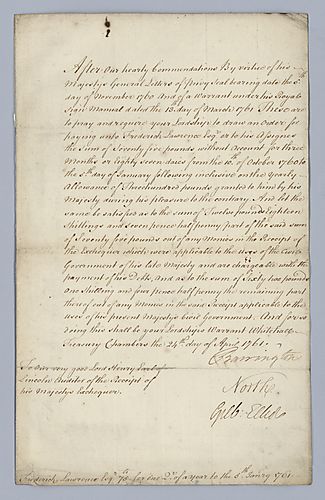 After our hearty Commendations By virtue of his
Majestys General Letters of Privy Seal bearing date the 5th
day of November 1760 And of a Warrant under his Royal
Sign Manual dated the 13th day of March 1761 These are
to pray and require your Lordship to draw an Order for
paying unto Frederick Lawrence Esqr. or to his Assignes
the Sum of Seventy five pounds without Account for three
Months or Eighty seven daies from the 10th of October 1760 to
the 5th day of January following inclusive on the Yearly
Allowance of Three hundred pounds granted to him by his
Majesty during his pleasure to the contrary And let the
same be satisfied as to the sum of Twelve pounds Eighteen
Shillings and seven pence half penny part of the said sum
of Seventy five pounds out of any Monies in the Receipt of
the Exchequer which were applicable to the uses of the Civil
Government of his late Majesty and are chargeable with the
payment of his Debts And as to the sum of Sixty two pounds
One Shilling and four pence half penny the remaining part
thereof out of any Monies in the said Receipt applicable to the
uses of his present Majestys Civil Government And for so
doing this shall be your Lordships Warrant Whitehall
Treasury Chambers the 24th day of April 1761.
Barrington
To Our very good Lord Henry Earl of
Lincoln Auditor of the Receipt of
his Majestys Exchequer.
North
Gilb. Elliot
Frederick Lawrence Esqr. 75 for one Qr. of a Year to the 5th Janry 1761